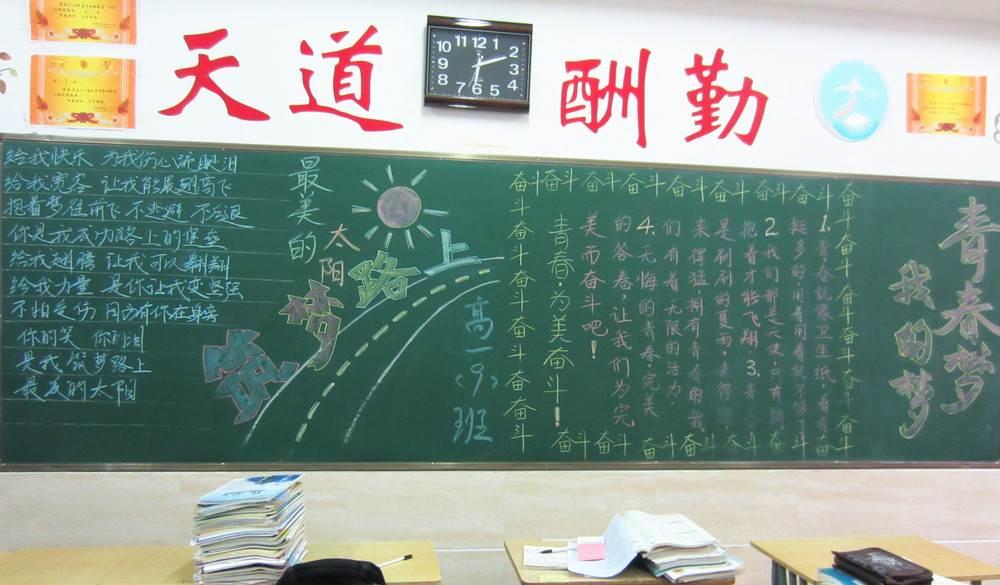 天道酬勤
10 11 12 1
9 2
8 3
7 6 5 4
给我快乐 为我伤心流眼泪
给我宽容 让我能展翅高飞
抱着梦往前飞 不逃避 不后退
你是我成功路上的堡垒
给我翅膀 让我可以翱翔
给我力量 是你让我变坚强
不怕受伤 因为有你在身旁
你的笑 你的泪
是我筑梦路上
最美的太阳
最美的
太阳
筑梦路上
高一(9)班
奋斗奋斗奋斗奋斗奋斗奋斗奋斗
奋斗奋斗奋斗奋斗奋斗奋斗
1.青春就像卫生纸,看着
挺多的,用着用着就不够了
2.我们都是天使只有
抱着才能飞翔 3.青春
是刷刷的夏雨,来得
来得猛拥有青春的我
们有着无限的活力,
4.无悔的青春,完美
的答卷,让我们为完
美而奋斗吧!
青春,为美奋斗!
奋斗奋斗 奋斗奋斗奋斗奋斗
青春梦
我的梦